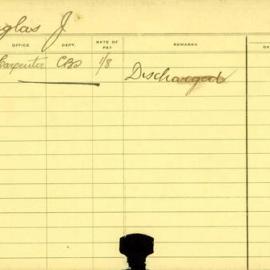 glas J.
OFFICE DEPT. RATE OF PAY REMARKS DA
Carpenter 1/8 Discharged